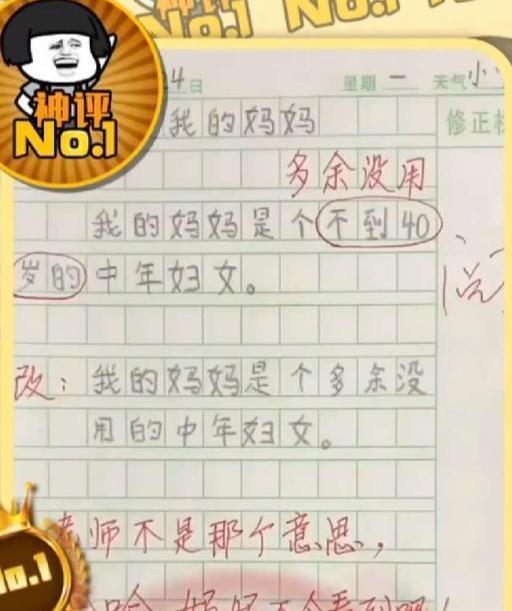 No.1
No.1
神评
No.1
4日
星期一
天气小
我的妈妈
修正栏
多余没用
我的妈妈是个不到40
岁的中年妇女。
改：我的妈妈是个多余没
用的中年妇女。
老师不是那个意思，
No.1